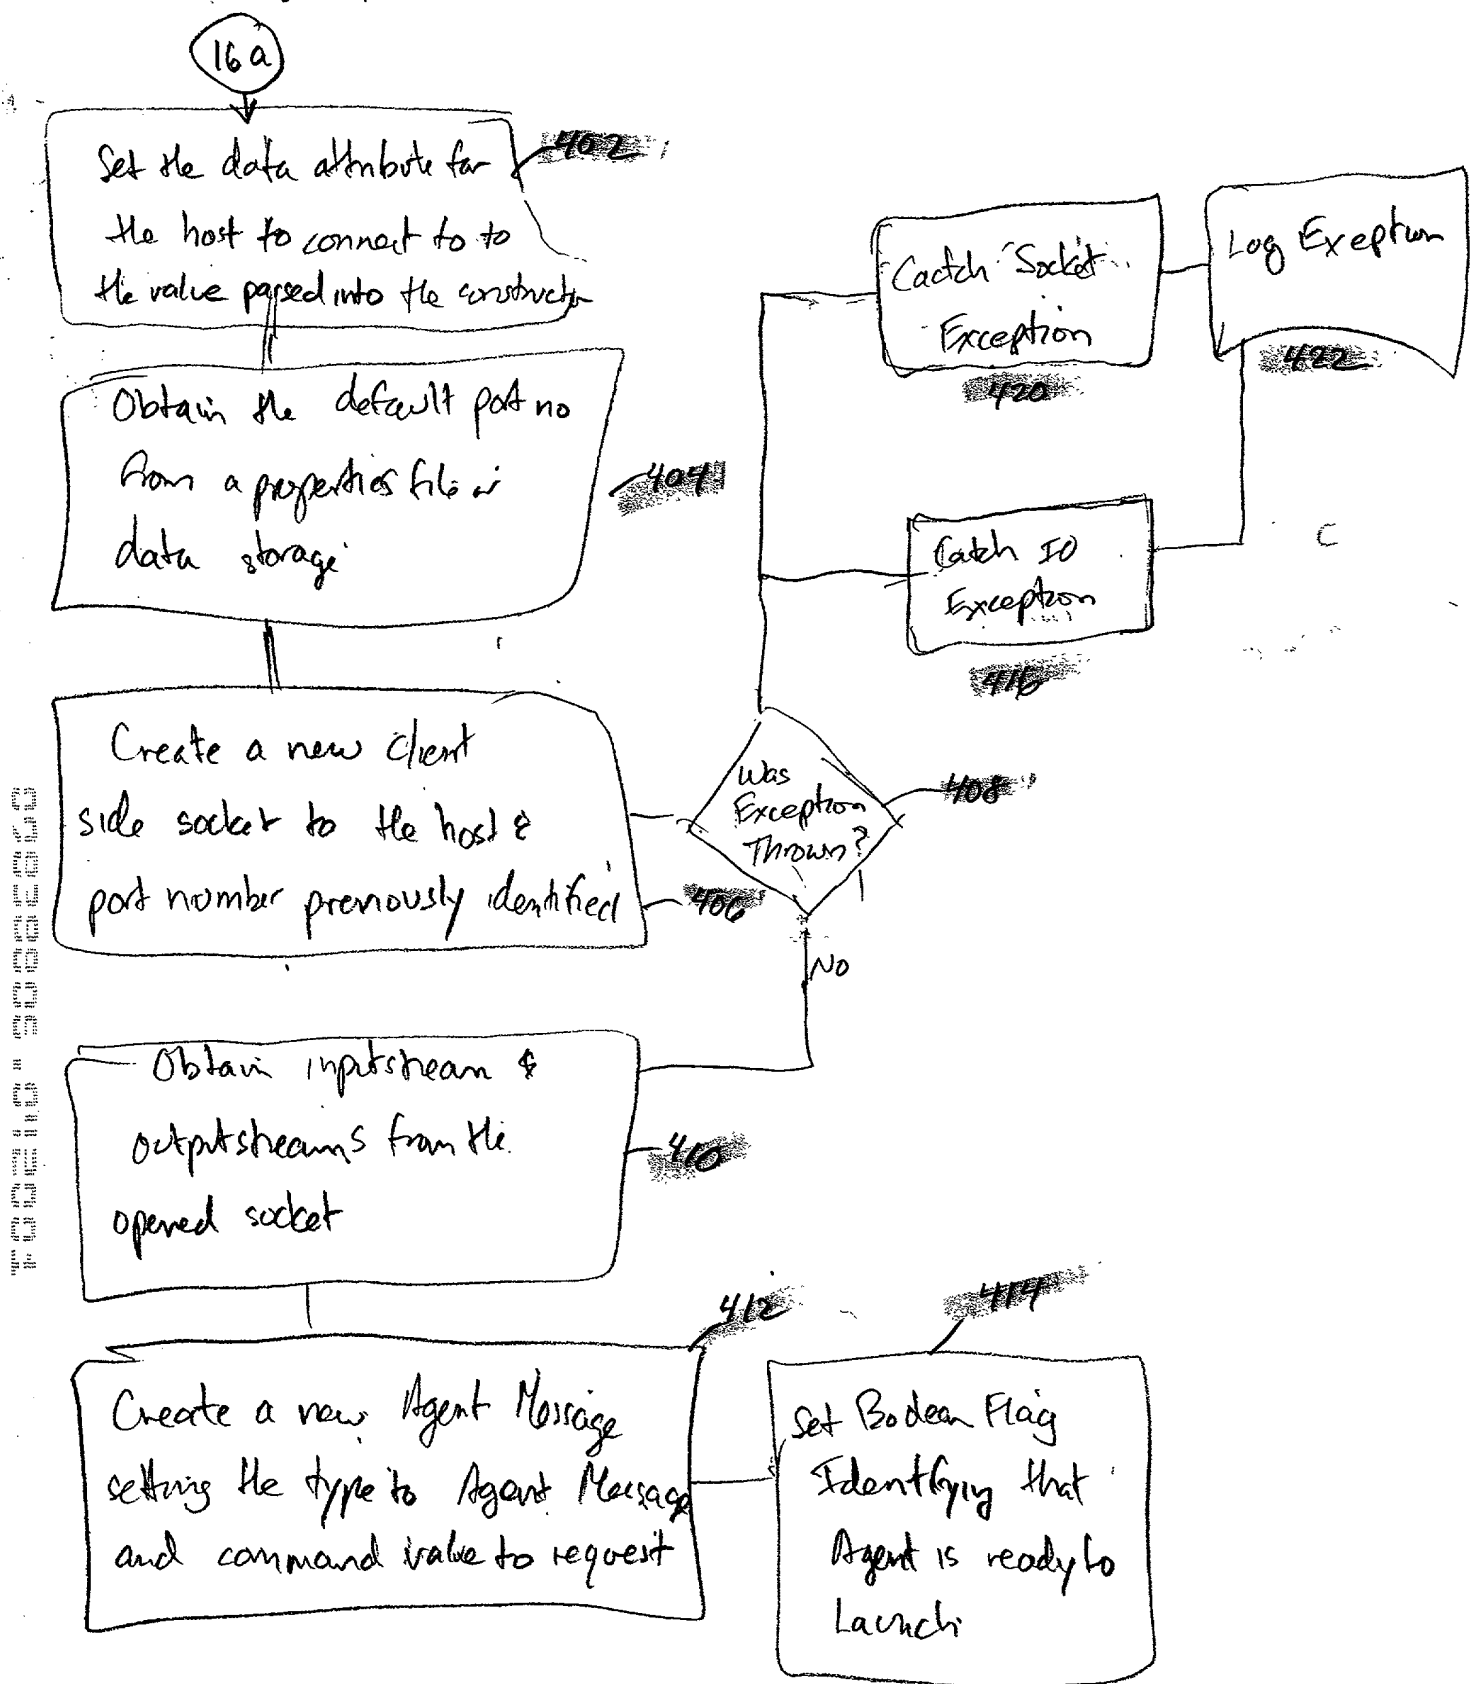 16a
402
Set the data attribute for
the host to connect to to
the value passed into the constructor
Obtain the default port no
from a properties file or
data storage
404
Create a new client
side socket to the host &
port number previously identified
406
Was
Exception
Thrown?
408
No
Catch Socket
Exception
420
Log Exeption
422
Catch IO
Exception
416
Obtain inputstream &
outputstreams from the
opened socket
410
412
Create a new Agent Message
setting the type to Agent Message
and command value to request
414
Set Boolean Flag
Identifying that
Agent is ready to
Launch